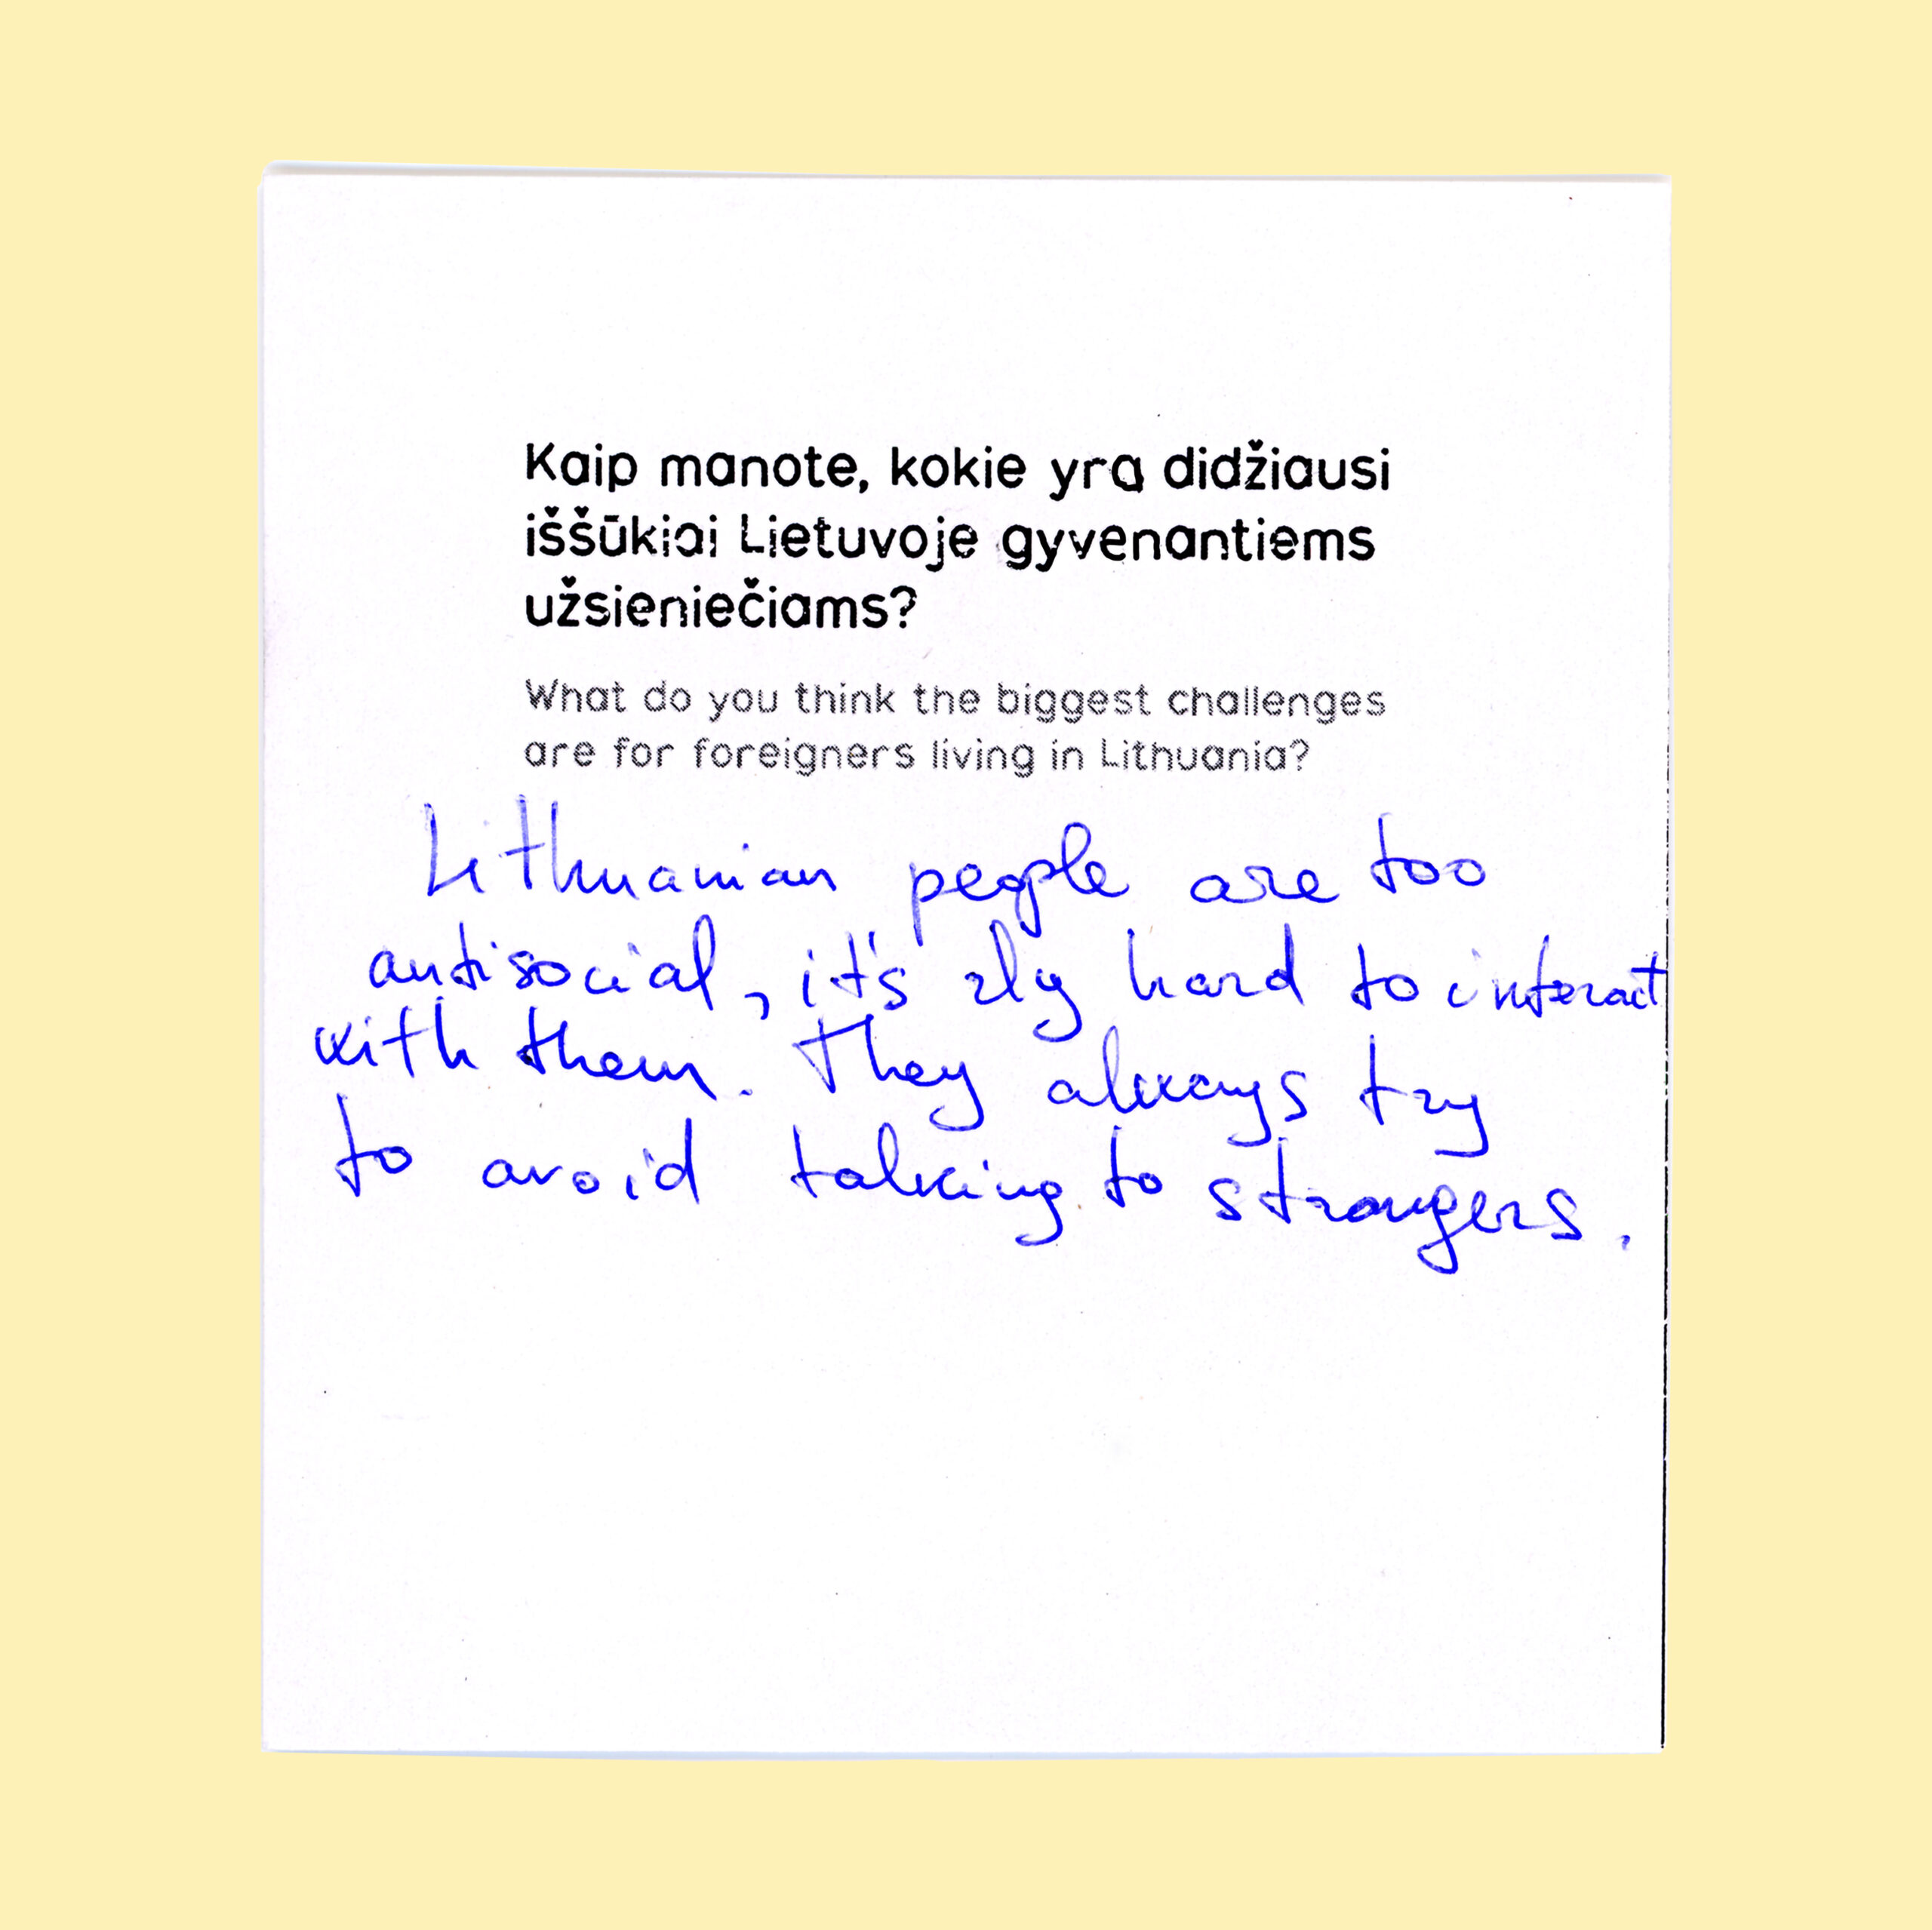 Kaip manote, kokie yra didžiausi
iššūkiai Lietuvoje gyvenantiems
užsieniečiams?
What do you think the biggest challenges
are for foreigners living in Lithuania?
Lithuanian people are too
antisocial, it's rly hard to interact
with them. They always try
to avoid talking to strangers.